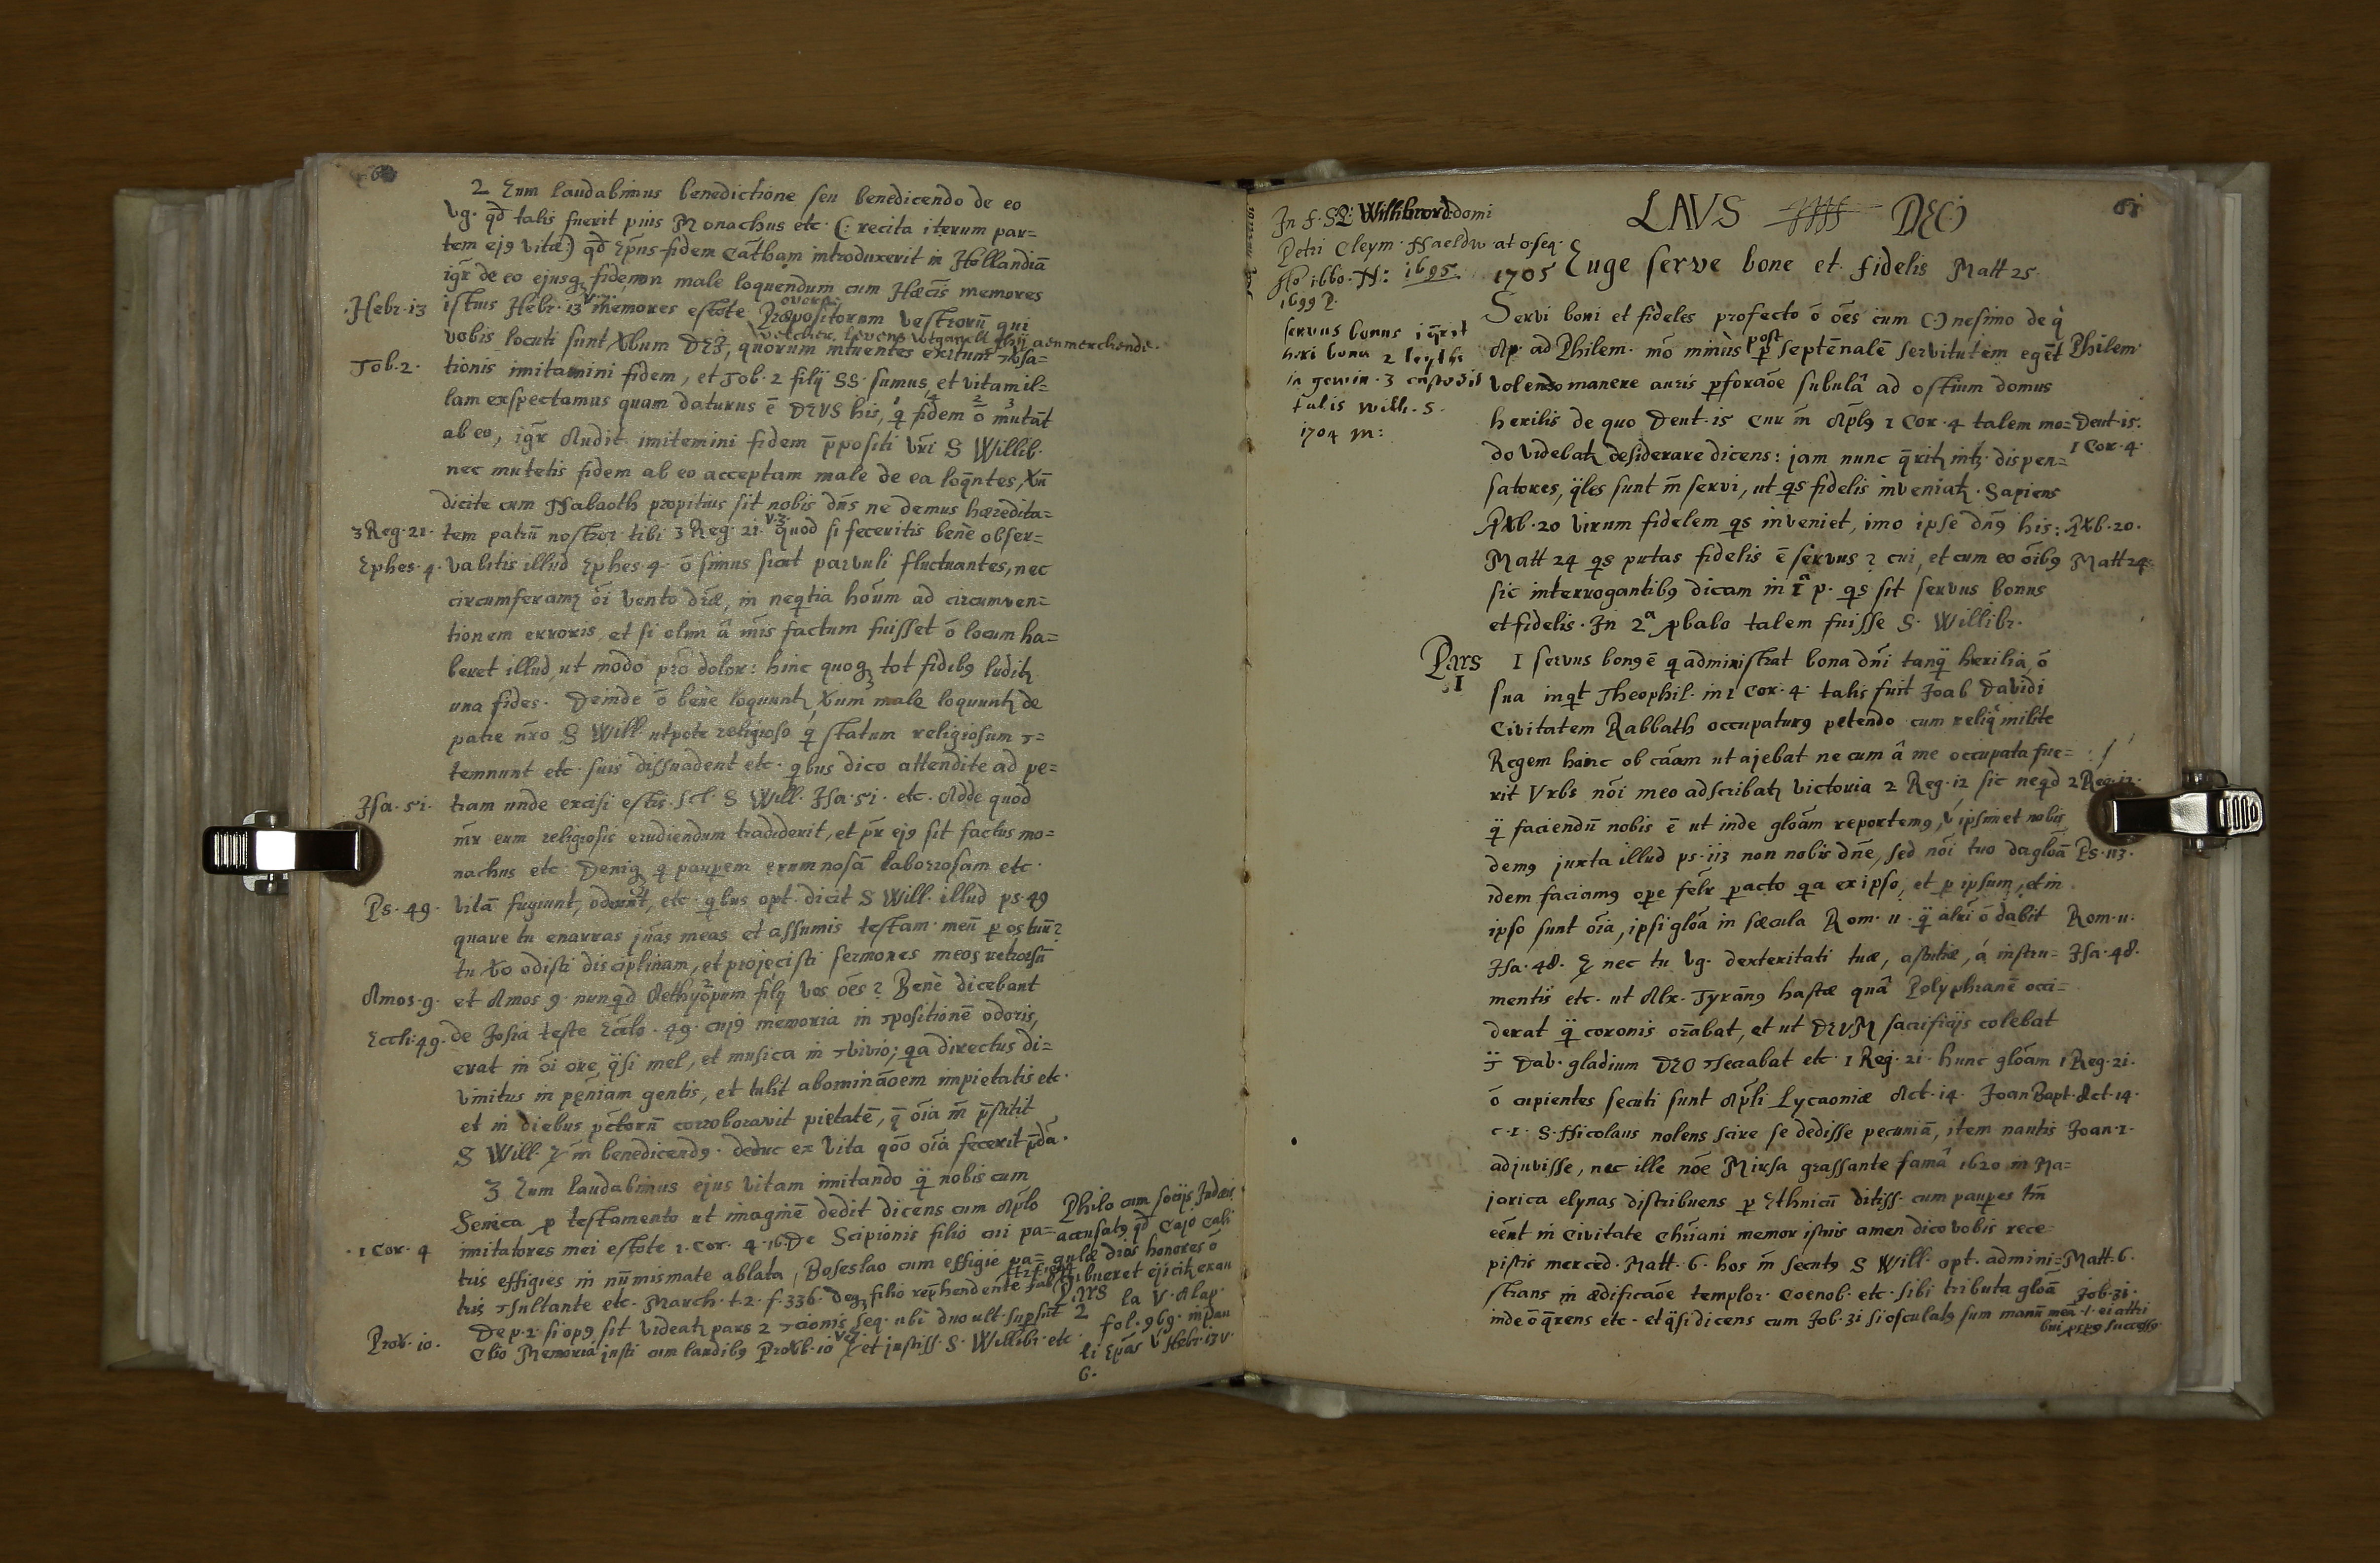 2 Eum laudabimus benedictione seu benedicendo de eo
vg. qd talis fuerit pius Monachus etc. (: recita iterum par=
tem ej9 vitæ:) qd Epūs fidem Cātham introduxerit in Hollandiā
igr̄ de eo ejusq; fide non male loquendum cum Hæcis memores
Hebr. 13 istius Hebr. 13 v. 7. memores estote Præpositorum vestrorū qui
vobis locuti sunt Xbum DEI, quorum intuentes exitum
Tob. 2. tionis imitamini fidem, et Tob. 2 filij SS. sumus, et vitam il=
lam exspectamus quam daturus ē DEUS his, q̄ fidem ō mutāt
ab eo, igr̄ Audit. imitemini fidem p̄positi v̄ri S Willib.
nec mutetis fidem ab eo acceptam male de ea loq̄ntes,
dicite cum Nabaoth propitius sit nobis dn̄s ne demus hæredita=
3 Reg. 21. tem patrū nostror tibi 3 Reg. 21. v. 3. quod si feceritis benè obser=
Ephes. 4. vabitis illud Ephes. 4. ō simus sicut parvuli fluctuantes, nec
circumferamꝫ ōi vento dr̄æ, in neq̄tia hōum ad circumven=
tionem erroris, et si olim â m̄is factum fuisset ō locum ha=
beret illud, ut modo prō dolor: hinc quoqꝫ tot fidib9 luditꝫ
una fides. Deinde ō benè loquuntꝫ Xum male loquuntꝫ de
patre nr̄o S Will. utpote religioso q̄ statum religiosum
temnunt etc. suis dissuadent etc. qbus dico attendite ad pe=
Isa. 51. tram unde excisi estis scl. S Will. Isa. 51. etc. Adde quod
m̄r eum religiosis erudiendum tradiderit, et p̄r ej9 sit factus mo=
nachus etc. Deniqꝫ q pauperem ærumnosā laboriosam etc.
Ps. 49. vitā fugiunt, oderunt, etc. qbus opt. dicit S Will. illud ps. 49
quare tu enarras jūas meas et assumis testam. meū p os tuū?
tu Xo odisti disciplinam, et projecisti sermones meos retrorsū
Amos. 9. et Amos 9. nunqd Aethyopum filij vos ōes? Benè dicebant
Eccli: 49. de Josia teste Eccło. 49. cuj9 memoria in τpositionē odoris,
erat in ōi ore q̈si mel, et musica in τvivio; qa directus di=
vinitus in pęniam gentis, et tulit abomināoem impietatis etc.
et in diebus pctorū corroboravit pietatē, q̄ ōia m̄ p̄stitit
S Will. m̄ benedicend9. deduc ex vita qōo ōia fecerit p̄dā.
3 Eum laudabimus ejus vitam imitando q̈ nobis cum
Seneca p testamento ut imaginē dedit dicens cum Ap̄lo
1 Cor. 4 imitatores mei estote 1. Cor. 4. 16. De Scipionis filio cui pa=
tris effigies in nūmismate ablata, Boseslao cum effigie pa=
tris τsultante etc. March. t. 2. f. 336. filio rep̄hendente
De p. 2. si op9 sit videatꝫ pars 2 τcionis seq. ubi duo ult. supsūt
Prov. 10. Clio Memoria justi cum laudib9 ProXb. 10 v. 7. et justiss. S. Willibr. etc.
Philo cum socijs Judæis
accusat9 qd Cajo Cali
gulæ divos honores ō
tribueret ejicitꝫ
Pars 2 la V. Alap.
fol. 969. in pau
li Epās v Hebr. 13 v.
6.
In F. S: Willibrord: domi
Petri Cleym.
Ao 1660. N: 1695.
1699 P.
servus bonus 1 q̄rit
heri bona 2
3 custodit
talis Will. S.
1704 M:
LAVS DEO
1705 Euge serve bone et fidelis Matt 25.
Servi boni et fideles profecto ō ōes cum (:) nesimo de q̄
Ap. ad Philem. mō minùs post p septēnalē servitutem egēt Philem.
volendo manere auris pforāoe subulâ ad ostium domus
herilis de quo Deut. 15 cur m̄ Apl9 1 Cor. 4 talem mo= Deut. 15.
do videbatꝫ desiderare dicens: jam nunc q̄ritꝫ intꝫ dispen= 1 Cor. 4.
satores, q̈les sunt m̄ servi, ut qs fidelis inveniatꝫ. Sapiens
PrXb. 20 virum fidelem qs inveniet, imo ipse dn̄9 his: PrXb. 20.
Matt 24 qs putas fidelis ē servus? cui, et cum eo ōib9 Matt 24.
sic interrogantib9 dicam in 1ª p. qs sit servus bonus
et fidelis. In 2ª pbabo talem fuisse S. Willibr.
Pars 1 1 servus bon9 ē q administrat bona dn̄i tanq̈ herilia, ō
sua inqt Theophil. in 1 Cor. 4. talis fuit Joab Davidi
Civitatem Rabbath occupatur9 petendo cum reliq̄ milite
Regem hanc ob cāam ut ajebat ne cum â me occupata fue=
rit Vrbs nōi meo adscribatꝫ victoria 2 Reg. 12 sic neqd 2 Reg. 12.
q̈ faciendū nobis ē ut inde gloām reportem9, v ipsimet nobis
dem9 juxta illud ps. 113 non nobis dn̄e, sed nōi tuo da gloā Ps. 113.
idem faciam9 ope felr̄ pacto qa ex ipso, et p ipsum, et in
ipso sunt ōia, ipsi glōa in sæcula Rom. 11. q̈ alr̄i ō dabit Rom. 11.
Isa. 48. nec tu vg. dexteritati tuæ, astutiæ, á instru= Isa. 48.
mentis etc. ut Alx. Tyrān9 hastæ quâ Polyphranē occi=
derat q̈ coronis orābat, et ut DEUM sacrificijs colebat
Dav. gladium DEO τsecrabat etc. 1 Reg. 21. hunc gloām 1 Reg. 21.
ō cupientes secuti sunt Apłi Lycaoniæ Act. 14. Joan Bapt. Act. 14.
c. 1. S. Nicolaus nolens scire se dedisse pecuniā, item nautis Joan. 1.
adjuvisse, nec ille nōe Mirsa grassante famâ 1620 in Ma=
jorica elynas distribuens p Ethnicū ditiss. cum paupes tm̄
eēnt in civitate chriani memor istius amen dico vobis rece
pistis merced. Matt. 6. hos m̄ secut9 S Will. opt. admini= Matt. 6.
strans in ædificāoe templor. coenob. etc. sibi tributa gloā Job. 31.
inde ō q̄rens etc. et q̈si dicens cum Job. 31 si osculat9 sum manū meā .1. ei attri
bui